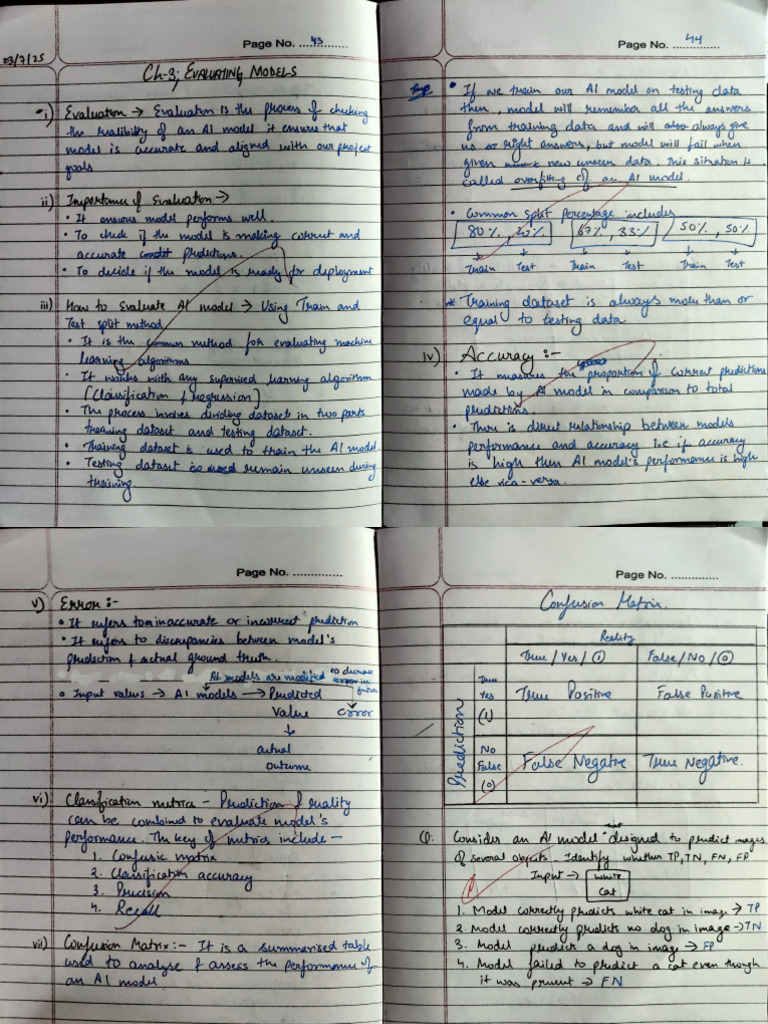 Page No. 43
03/7/25
Ch-3; EVALUATING MODELS
i) Evaluation → Evaluation is the process of checking
the realibility of an AI model it ensures that
model is accurate and aligned with our project
goals
ii) Importance of Evaluation →
• It ensures model performs well.
• To check if the model is making correct and
accurate predictions.
• To decide if the model is ready for deployment
iii) How to Evaluate AI model → Using Train and
Test split method
• It is the common method for evaluating machine
learning algorithms
• It works with any supervised learning algorithm
(Classification & regression)
• The process involves dividing dataset in two parts
training dataset and testing dataset.
• Training dataset is used to train the AI model
• Testing dataset is used remain unseen during
training.
Page No. 44
Imp • If we train our AI model on testing data
then, model will remember all the answers
from training data and will also always give
us right answers, but model will fail when
given new unseen data. This sitration is
called overfitting of an AI model.
• Common split percentage includes
80%, 20% 67%, 33% 50%, 50%
Train Test Train Test Train Test
* Training dataset is always more than or
equal to testing data
iv) Accuracy :-
• It measures the proportion of correct predictions
made by AI model in comparison to total
predictions.
• There is direct relationship between models
performance and accuracy i.e if accuracy
is high then AI model's performance is high
else vica-versa.
Page No.
v) Error :-
• It refers to inaccurate or incorrect prediction
• It refers to discrepancies between model's
prediction & actual ground truth.
AI models are modified to decrease error in future
• Input values → AI models → Predicted
Value error
↓
actual
outcome
vi) Classification metrics - Prediction & reality
can be combined to evaluate model's
performance. The key of metrics include -
1. Confusic matrix
2. Classification accuracy
3. Precision
4. Recall
vii) Confusion Matrix :- It is a summarised table
used to analyse & assess the performance of
an AI model
Page No.
Confusion Matrix.
Reality
True / Yes / (1) False / No / (0)
Prediction
True Yes (1) True Positive False Positive
No False (0) False Negative True Negative.
Q: Consider an AI model designed to predict images
of several objects. Identify whether TP, TN, FN, FP
Input → White
Cat
1. Model correctly predicts white cat in image → TP
2. Model correctly predicts no dog in image → TN
3. Model predict a dog in image → FP
4. Model failed to predict a cat even though
it was present → FN